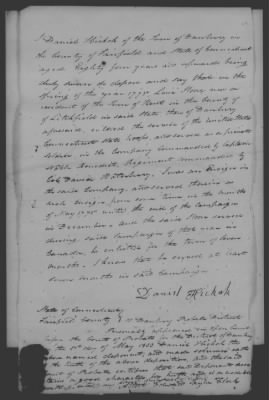 I Daniel Hickok of the Town of Danbury in
the County of Fairfield and State of Connecticut
aged Eighty four years and upwards being
duly sworn do depose and say that in the
Spring of the year 1775 Levi Stone now a
resident of the Town of Kent in the County
of Litchfield in said State then of Danbury
aforesaid, entered the service of the United States
Connecticut State troops and served as a private
Soldier in the Company commanded by Captain
Noble Benedict, Regiment commanded by
Col. David Waterbury. I was an Ensign in
the said Company and served therein as
such Ensign from some time in the month
of May 1775 until the end of the campaign
in December and the said Stone served
during said Campaign of that year in
Canada, he enlisted for the term of seven
months. I know that he served at least
seven months in said Campaign
Daniel Hickok
State of Connecticut
Fairfield County Danbury Probate District
Personally appeared in open Court
before the Court of Probate in the District of Danbury
on the day of May 1833 Daniel Hickok the
above named deponent, and made solemn oath
to the truth of the above deposition, and the said
Court of Probate certifies that said deponent